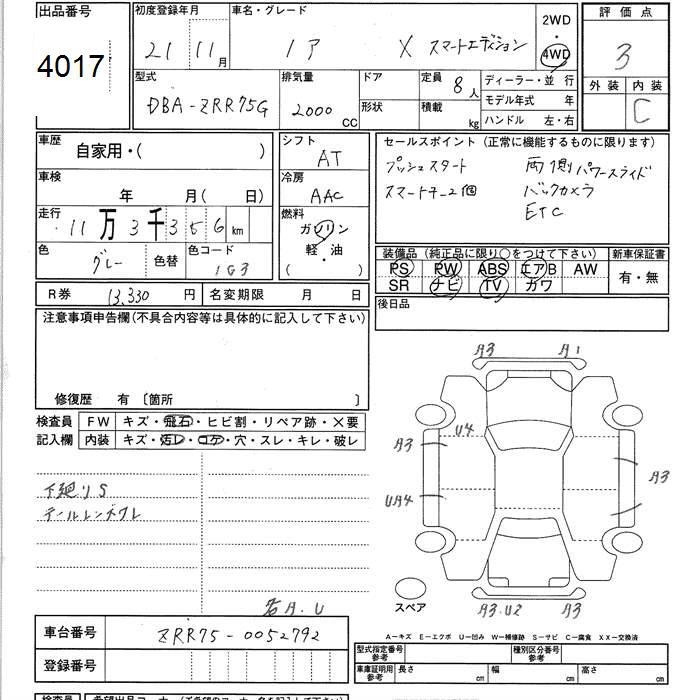 出品番号
4017
初度登録年月
21 11月
車名・グレード
ノア X スマートエディション
2WD
・
4WD
評価点
3
外装 内装
C
型式
DBA-ZRR75G
排気量
2000 CC
ドア
形状
定員 8人
積載 kg
ディーラー・並行
モデル年式 年
ハンドル 左・右
車歴
自家用・( )
車検
年 月( 日)
走行
11万3千356km
色
グレー
色替
色コード
1G3
シフト
AT
冷房
AAC
燃料
ガソリン
軽・油
( )
セールスポイント(正常に機能するものに限ります)
プッシュスタート 両側パワースライド
スマートキー2個 バックカメラ
ETC
装備品(純正品に限り○をつけて下さい)
PS PW ABS エアB AW
SR ナビ TV カワ
新車保証書
有・無
後日品
R券 13,330円
名変期限 月 日
注意事項申告欄(不具合内容等は具体的に記入して下さい)
修復歴 有 〔箇所 〕
検査員
記入欄
FW キズ・飛石・ヒビ割・リペア跡・×要
内装 キズ・汚レ・コゲ・穴・スレ・キレ・破レ
下廻りS
テールレンズワレ
若A.U
A3 A1
A3 U4
UA4
A3
A3.U2 A3
スペア
A－キズ E－エクボ U－凹み W－補修跡 S－サビ C－腐食 XX－交換済
車台番号 ZRR75-0052792
登録番号
型式指定番号
参考
種別区分番号
参考
車庫証明用
参考
長さ cm
幅 cm
高さ cm
検査員